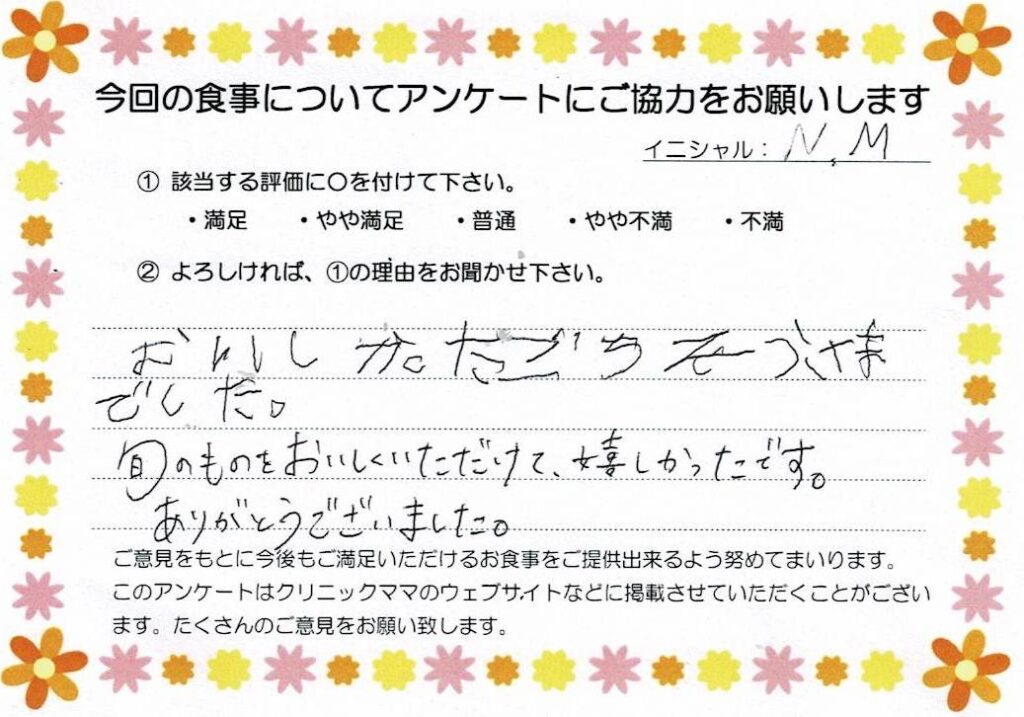 今回の食事についてアンケートにご協力をお願いします
イニシャル: N.M
① 該当する評価に〇を付けて下さい。
・満足 ・やや満足 ・普通 ・やや不満 ・不満
② よろしければ、①の理由をお聞かせ下さい。
おいしかただごちそうさま
でした。
旬のものをおいしくいただけて、嬉しかったです。
ありがとうございました。
ご意見をもとに今後もご満足いただけるお食事をご提供出来るよう努めてまいります。
このアンケートはクリニックママのウェブサイトなどに掲載させていただくことがござい
ます。たくさんのご意見をお願い致します。